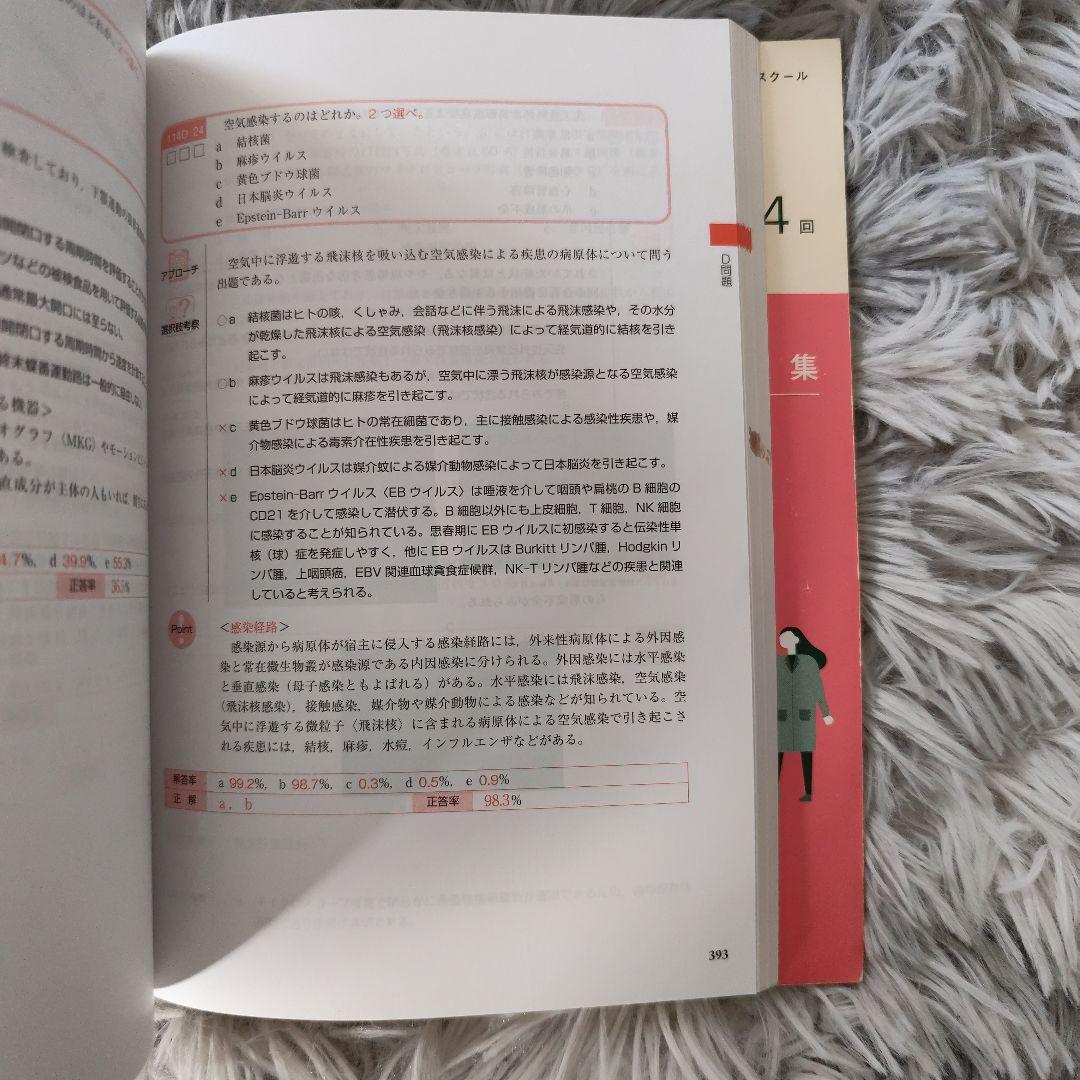 検査しており,下顎運動の
開閉口する周期時間を評価する
ツなどの被検食品を用いて評価する
通常最大開口には至らない。
開閉口する周期時間から速度を
終末蝶番運動路は一般的に
る機器>
オグラフ(MKG)やモーション
ある。
直成分が主体の人もいれば,
4.7%, d 39.9%, e 55.3%
正答率 36.5%
114D 24
空気感染するのはどれか。2つ選べ。
a 結核菌
b 麻疹ウイルス
c 黄色ブドウ球菌
d 日本脳炎ウイルス
e Epstein-Barr ウイルス
アプローチ
空気中に浮遊する飛沫核を吸い込む空気感染による疾患の病原体について問う
出題である。
選択肢考察
○a 結核菌はヒトの咳,くしゃみ,会話などに伴う飛沫による飛沫感染や,その水分
が乾燥した飛沫核による空気感染(飛沫核感染)によって経気道的に結核を引き
起こす。
○b 麻疹ウイルスは飛沫感染もあるが,空気中に漂う飛沫核が感染源となる空気感染
によって経気道的に麻疹を引き起こす。
×c 黄色ブドウ球菌はヒトの常在細菌であり,主に接触感染による感染性疾患や,媒
介物感染による毒素介在性疾患を引き起こす。
×d 日本脳炎ウイルスは媒介蚊による媒介動物感染によって日本脳炎を引き起こす。
×e Epstein-Barr ウイルス〈EB ウイルス〉は唾液を介して咽頭や扁桃の B 細胞の
CD21 を介して感染して潜伏する。B 細胞以外にも上皮細胞,T 細胞,NK 細胞
に感染することが知られている。思春期に EB ウイルスに初感染すると伝染性単
核(球)症を発症しやすく,他に EB ウイルスは Burkitt リンパ腫,Hodgkin リ
ンパ腫,上咽頭癌,EBV 関連血球貪食症候群,NK-T リンパ腫などの疾患と関連
していると考えられる。
Point
<感染経路>
感染源から病原体が宿主に侵入する感染経路には,外来性病原体による外因感
染と常在微生物叢が感染源である内因感染に分けられる。外因感染には水平感染
と垂直感染(母子感染ともよばれる)がある。水平感染には飛沫感染,空気感染
(飛沫核感染),接触感染,媒介物や媒介動物による感染などが知られている。空
気中に浮遊する微粒子(飛沫核)に含まれる病原体による空気感染で引き起こさ
れる疾患には,結核,麻疹,水痘,インフルエンザなどがある。
解答率 a 99.2%, b 98.7%, c 0.3%, d 0.5%, e 0.9%
正解 a,b 正答率 98.3%
393
D問題
スクール
4回
集